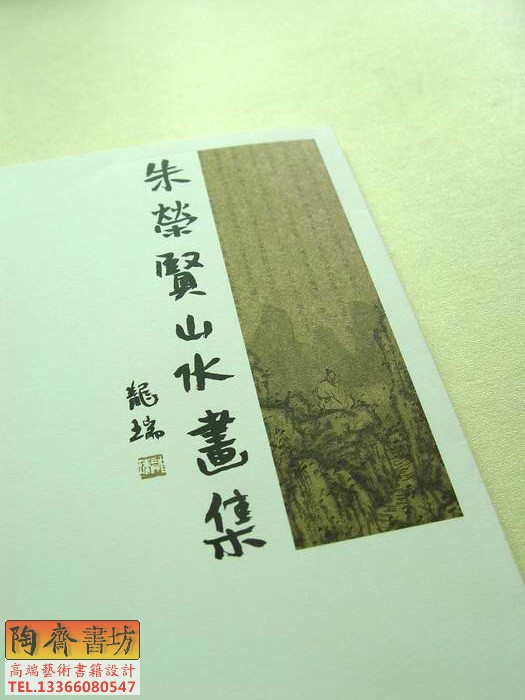 朱榮賢山水畫集
龍瑞
陶齋書坊
高端藝術書籍設計
TEL.13366080547